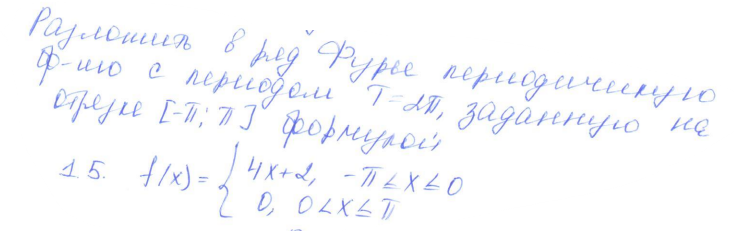 Разложить в ряд Фурье периодическую
ф-ию с периодом T=2π, заданную на
отрезке [-π; π] формулой
1.5. f(x) = { 4x+2, -π≤x≤0
0, 0<x≤π